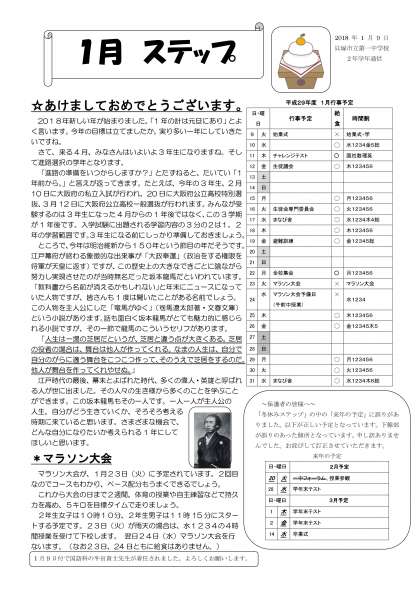 1月 ステップ
2018 年 1 月 9 日
貝塚市立第一中学校
2年学年通信
☆あけましておめでとうございます。
2018年新しい年が始まりました。「1年の計は元旦にあり」とよ
く言います。今年の目標は立てましたか。実り多い一年にしていきた
いですね。
さて、来る4月、みなさんはいよいよ3年生になりますね。そし
て進路選択の学年となります。
「進路の準備をいつからしますか?」とたずねると、たいてい「1
年前から。」と答えが返ってきます。たとえば、今年の3年生。2月
10日に大阪府の私立入試が行われ、20日に大阪府公立高校特別選
抜、3月12日に大阪府公立高校一般選抜が行われます。みんなが受
験するのは3年生になった4月からの1年後ではなく、この3学期
が1年後です。入学試験に出題される学習内容の3分の2は1、2
年の学習範囲です。3年生になる前にしっかり準備しておきましょう。
ところで、今年は明治維新から150年という節目の年だそうです。
江戸幕府が終わる象徴的な出来事が「大政奉還」(政治をする権限を
将軍が天皇に返す)ですが、この歴史上の大きなできごとに陰ながら
努力し実現させたのが当時無名だった坂本龍馬だといわれています。
「教科書から名前が消えるかもしれない」と年末にニュースになって
いた人物ですが、皆さんも1度は聞いたことがある名前でしょう。
この人物を主人公にした「竜馬がゆく」(司馬遼太郎著・文春文庫)
という小説があります。話も面白く坂本龍馬がとても魅力的に感じら
れる小説ですが、その一節で龍馬のこういうセリフがあります。
「人生は一場の芝居だというが、芝居と違う点が大きくある。芝居
の役者の場合は、舞台は他人が作ってくれる。なまの人生は、自分で
自分のがらに適う舞台をこつこつ作って、そのうえで芝居をするのだ。
他人が舞台を作ってくれやせぬ。」
江戸時代の最後、幕末とよばれた時代、多くの偉人・英雄と呼ばれ
る人が世に出ました。その人々の生き様から多くのことを学ぶこと
ができます。この坂本龍馬もその一人です。一人一人が主人公の
人生。自分がどう生きていくか、そろそろ考える
時期に来ていると思います。さまざまな機会で、
どんな自分になりたいか考えられる1年にして
ほしいと思います。
＊マラソン大会
マラソン大会が、1月23日(火)に予定されています。2回目
なのでコースもわかり、ペース配分もうまくできるでしょう。
これから大会の日まで2週間、体育の授業や自主練習などで持久
力を高め、5キロを目標タイムで走りましょう。
2年生女子は10時10分、2年生男子は11時15分にスター
トする予定です。23日(火)が雨天の場合は、水1234の4時
間授業を受けて下校します。翌日24日(水)マラソン大会を行
ないます。(なお23日、24日ともに給食はありません。)
平成29年度 1月行事予定
日・曜日 行事予定 給食 時間割
9 火 始業式 × 始業式・学
10 水 ○ 水1234金5総
11 木 チャレンジテスト ○ 国社数理英
12 金 生徒議会 ○ 木123456
13 土
14 日
15 月 ○ 月123456
16 火 生徒会専門委員会 ○ 火123456
17 水 まなび舎 ○ 水1234木4総
18 木 ○ 木123456
19 金 避難訓練 ○ 金12345総
20 土
21 日
22 月 全校集会 ○ 月123456
23 火 マラソン大会 × マラソン大会
24 水 マラソン大会予備日
(午前中授業) × 水1234
25 木 ○ 木123456
26 金 ○ 金12345木5
27 土
28 日
29 月 ○ 月123456
30 火 ○ 火123456
31 水 まなび舎 ○ 水1234木6総
～保護者の皆様へ～
「冬休みステップ」の中の「来年の予定」に誤りがあ
りました。以下が正しい予定となっています。下線部
が誤りのあった個所となっています。申し訳ありませ
んでした。お詫びして訂正させていただきます。
来年の予定
日・曜日 2月予定
20 火 一中フォーラム、授業参観
28 水 学年末テスト
日・曜日 3月予定
1 木 学年末テスト
2 金 学年末テスト
14 水 卒業式